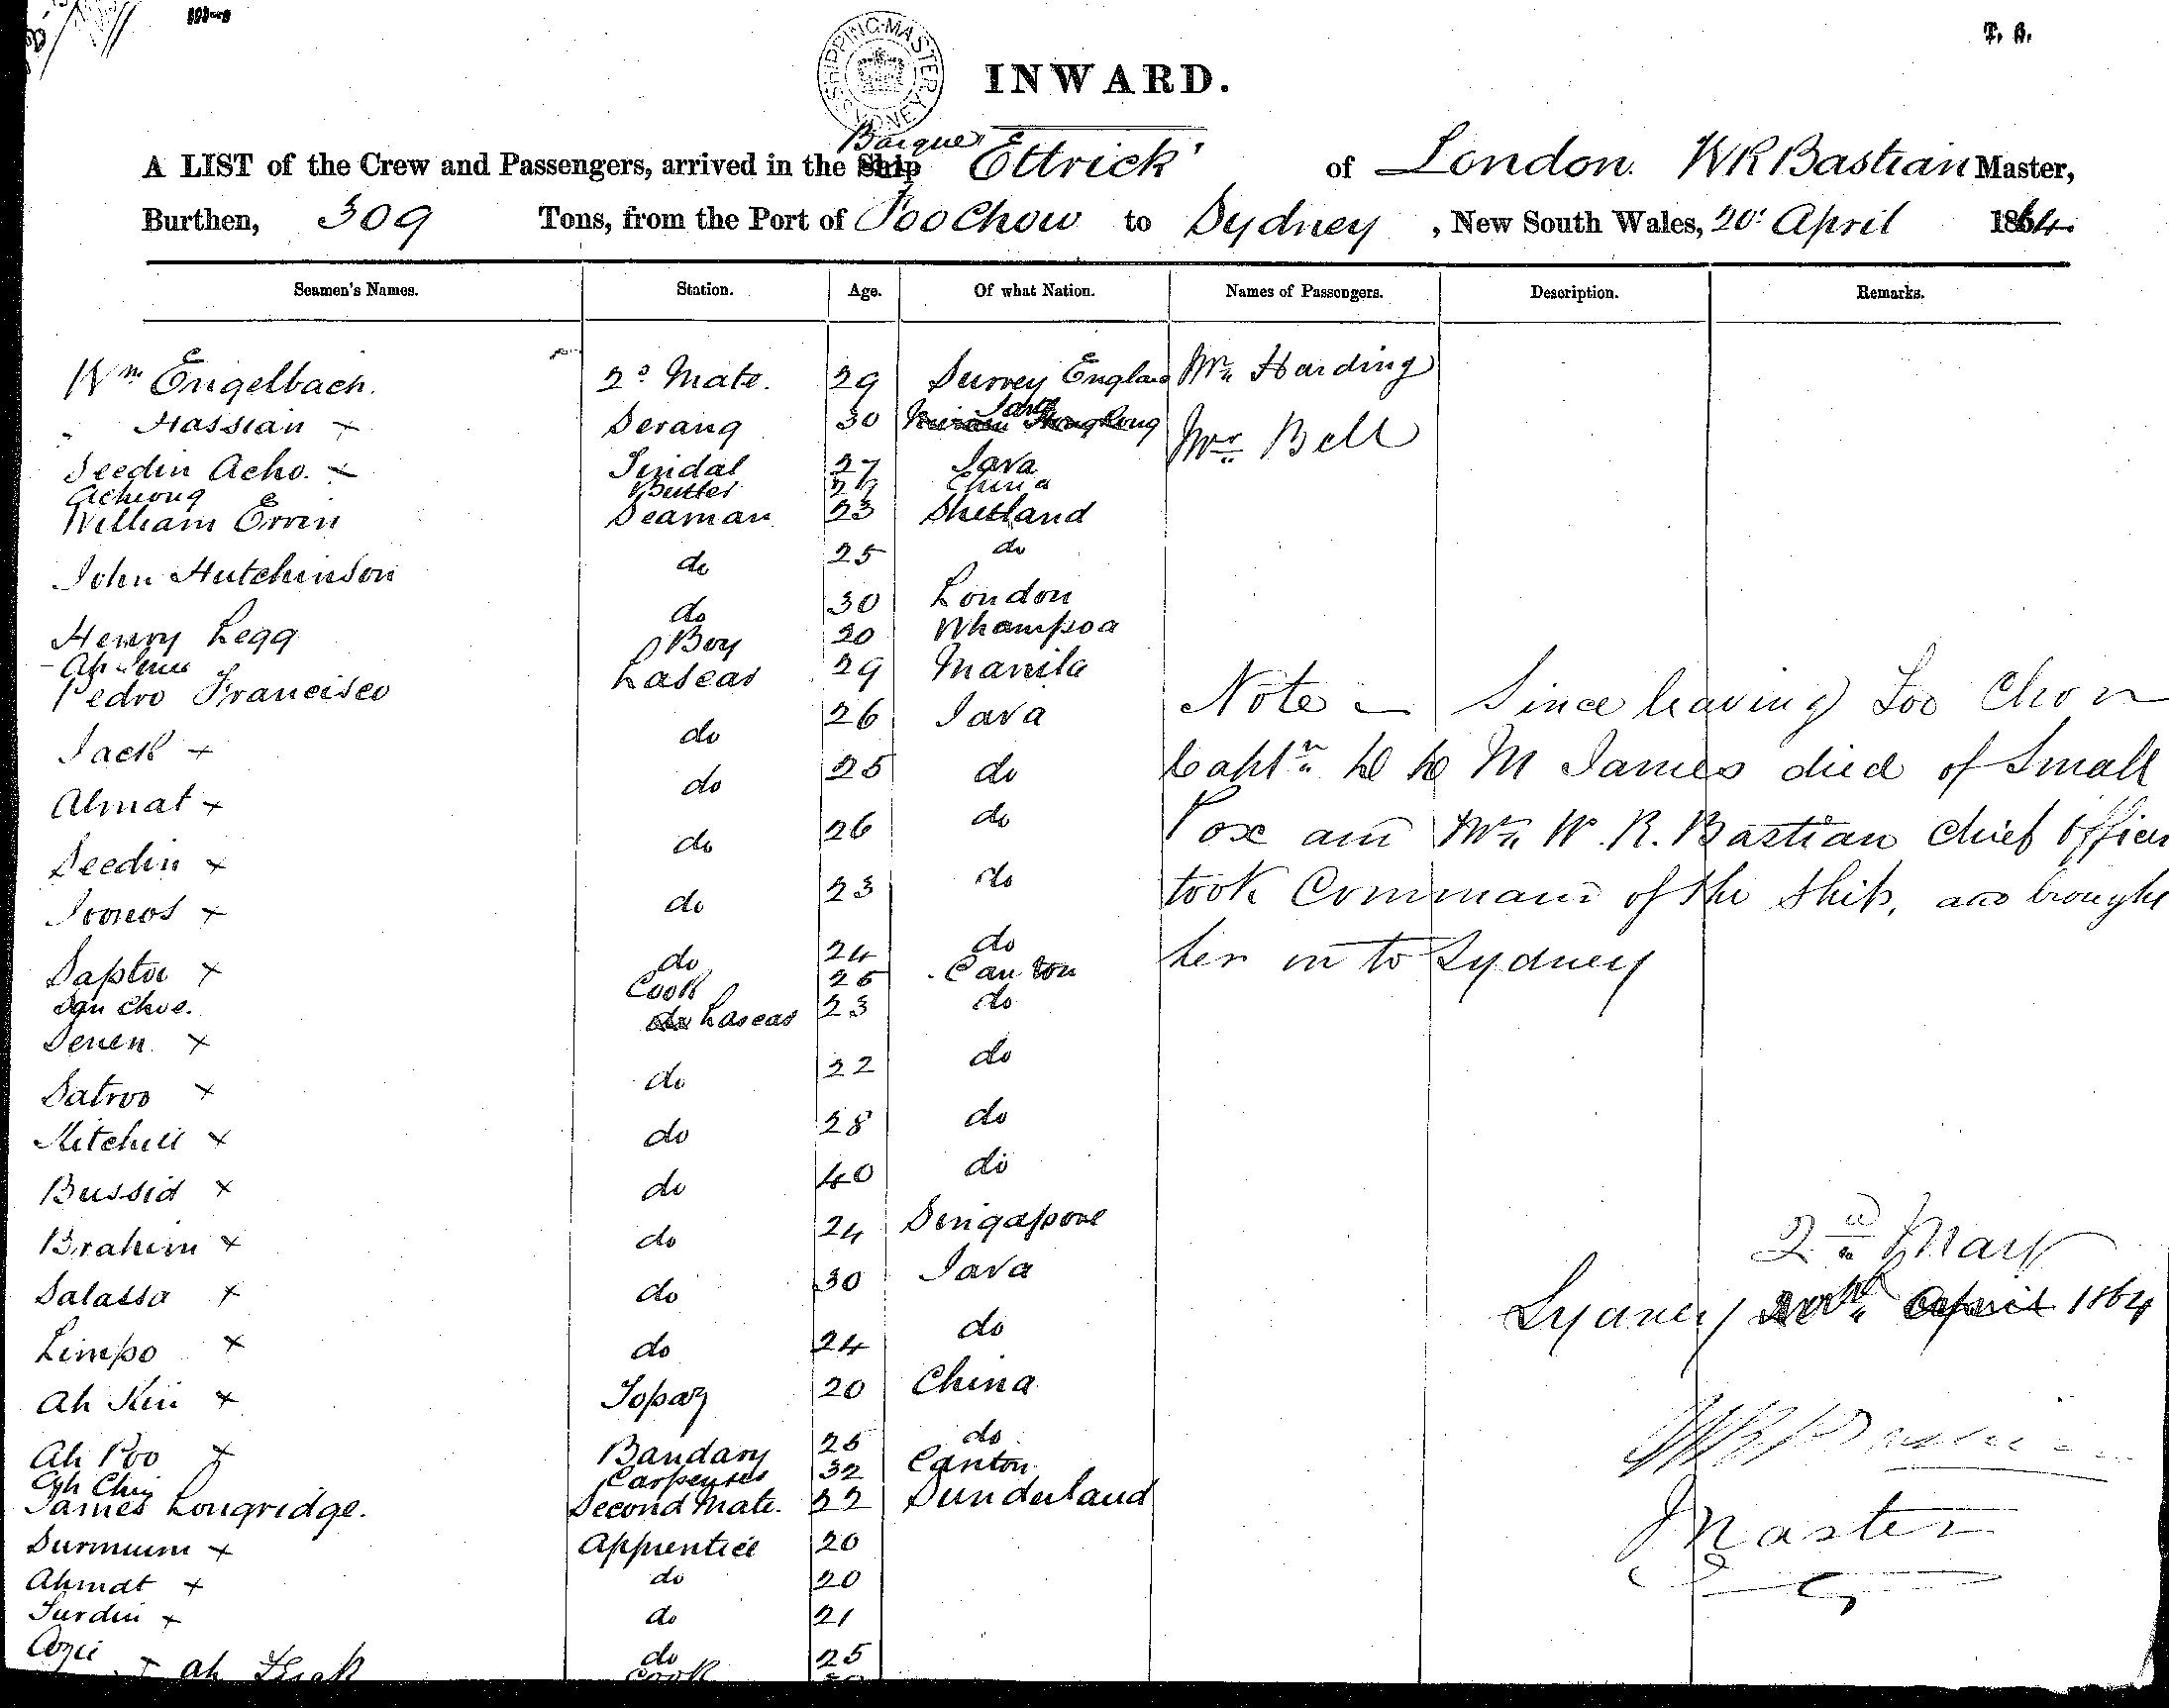 T. B.
SHIPPING MASTER SYDNEY
INWARD.
Barque
A LIST of the Crew and Passengers, arrived in the Ship Ettrick of London. W R Bastian Master,
Burthen, 309 Tons, from the Port of Foo Chow to Sydney, New South Wales, 20' April 1864.
Seamen's Names. Station. Age. Of what Nation. Names of Passengers. Description. Remarks.
Wm Engelbach. 2d Mate. 29 Surrey England Mr Harding
" Hassian + Serang 30 Java Mr Bell
Seedin Acho. + Tindal 27 Java
Acheong Butler China
William Ervin Seaman 23 Shetland
John Hutchinson do 25 do
Henry Legg do 30 London
Boy 20 Whampoa
Pedro Francisco Lascar 29 Manila
Jack + do 26 Java
Almat + do 25 do
Seedin + do 26 do
do 23 do
Saptu + do 24 do
Cook 25 Canton
Senen + Lascar 23 do
Satroo + do 22 do
Mitchill + do 28 do
Bussid + do 40 do
Brahim + do 24 Singapore
Salassa + do 30 Java
Limpo + do 24 do
Ah Kin + Topaz 20 China
Ah Poo + Bandary 25 do
Carpenter 32 Canton
James Longridge. Second Mate. 22 Sunderland
Surmium + Apprentice 20
Ahmat + do 20
Surdin + do 21
do 25
Cook
Note – Since leaving Foo Chow
Captn James died of Small
Pox and Mr W. R. Bastian Chief Officer
took Command of the Ship, and brought
her in to Sydney
2nd May
Sydney April 1864
Master